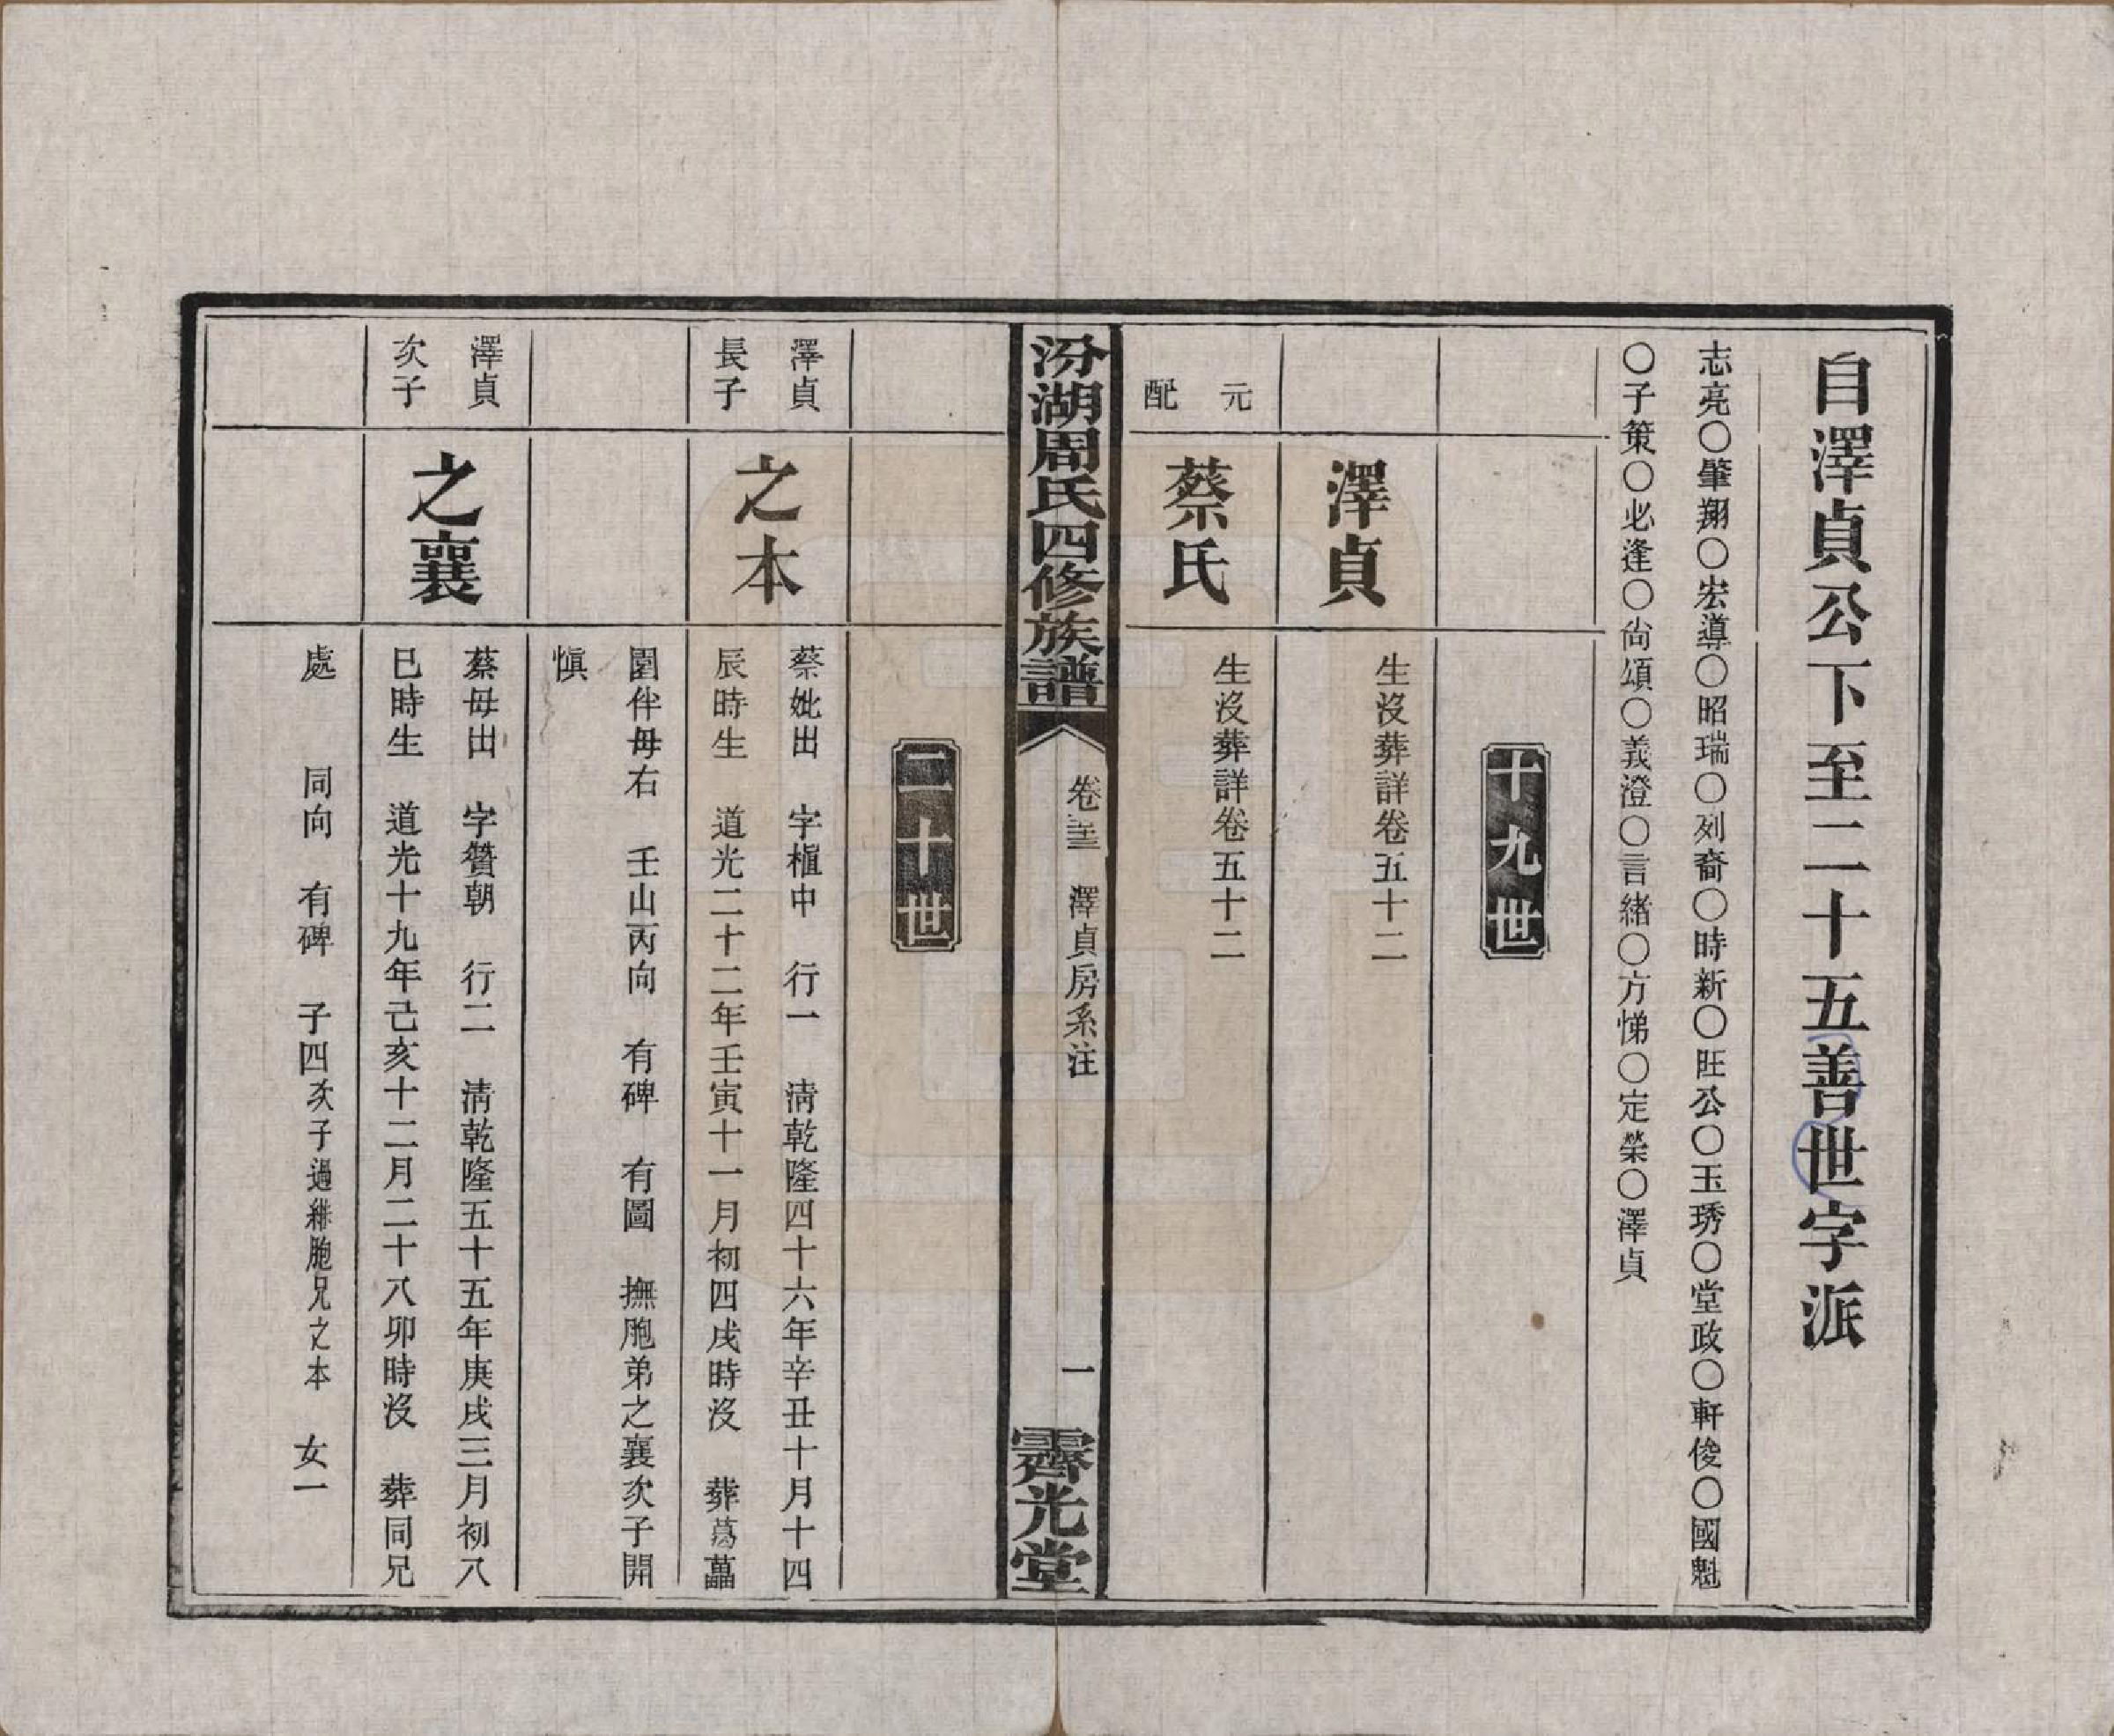 自澤貞公下至二十五善世字派
志亮〇肇翔〇宏導〇昭瑞〇列裔〇時新〇旺公〇玉琇〇堂政〇軒俊〇國魁
〇子策〇必逢〇尙頌〇義澄〇言緒〇方悌〇定榮〇澤貞
十九世
澤貞
生沒葬詳卷五十二
元配
蔡氏
生沒葬詳卷五十二
汾湖周氏四修族譜
卷
澤貞房系注
一
霽光堂
二十世
澤貞
長子
之本
蔡妣出　字植中　行一　淸乾隆四十六年辛丑十月十四
辰時生　道光二十二年壬寅十一月初四戌時沒　葬蒿藟
園伴母右　壬山丙向　有碑　有圖　撫胞弟之襄次子開
愼
澤貞
次子
之襄
蔡母出　字贊朝　行二　淸乾隆五十五年庚戌三月初八
巳時生　道光十九年己亥十二月二十八卯時沒　葬同兄
處　同向　有碑　子四次子過繼胞兄之本　女一